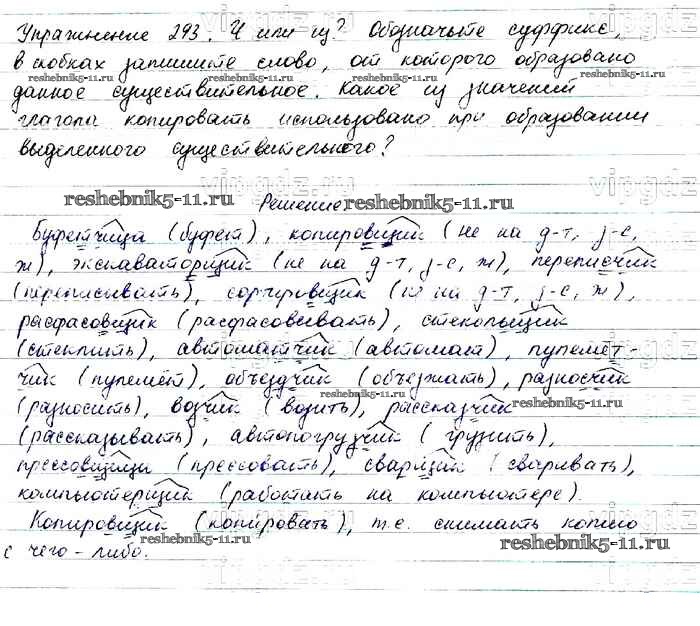 Упражнение 293. Ч или щ? Обозначьте суффикс,
в скобках запишите слово, от которого образовано
данное существительное. Какое из значений
глагола копировать использовано при образовании
выделенного существительного?
reshebnik5-11.ru
Решение
Буфетчица (буфет), копировщик (не на д-т, з-с,
ж), экскаваторщик (не на д-т, з-с, ж), переписчик
(переписывать), сортировщик (не на д-т, з-с, ж),
расфасовщик (расфасовывать), стекольщик
(стеклить), автоматчик (автомат), пулемёт-
чик (пулемёт), объездчик (объезжать), разносчик
(разносить), возчик (возить), рассказчик
(рассказывать), автопогрузчик (грузить),
прессовщицы (прессовать), сварщик (сваривать),
компьютерщик (работать на компьютере).
Копировщик (копировать), т.е. снимать копию
с чего-либо.
reshebnik5-11.ru